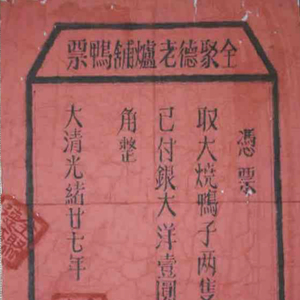 全聚德老爐舖鴨票
憑票
取大燒鴨子两隻
已付銀大洋壹圓
角整
大清光緒廿七年